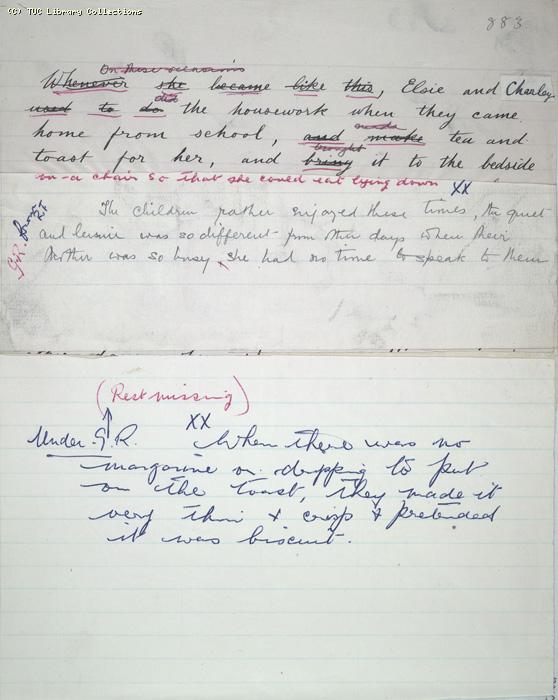 (C) TUC Library Collections
883
On these occasions
Whenever she became like this, Elsie and Charley
did
used to do the housework when they came
made
home from school, and make tea and
brought
toast for her, and bring it to the bedside
on a chair so that she could eat lying down XX
The children rather enjoyed these times, the quiet
and leisure was so different from other days when their
mother was so busy, she had no time to speak to them
(Rest missing)
Under G.R. XX When there was no
margarine or dripping to put
on the toast, they made it
very thin & crisp & pretended
it was biscuit.